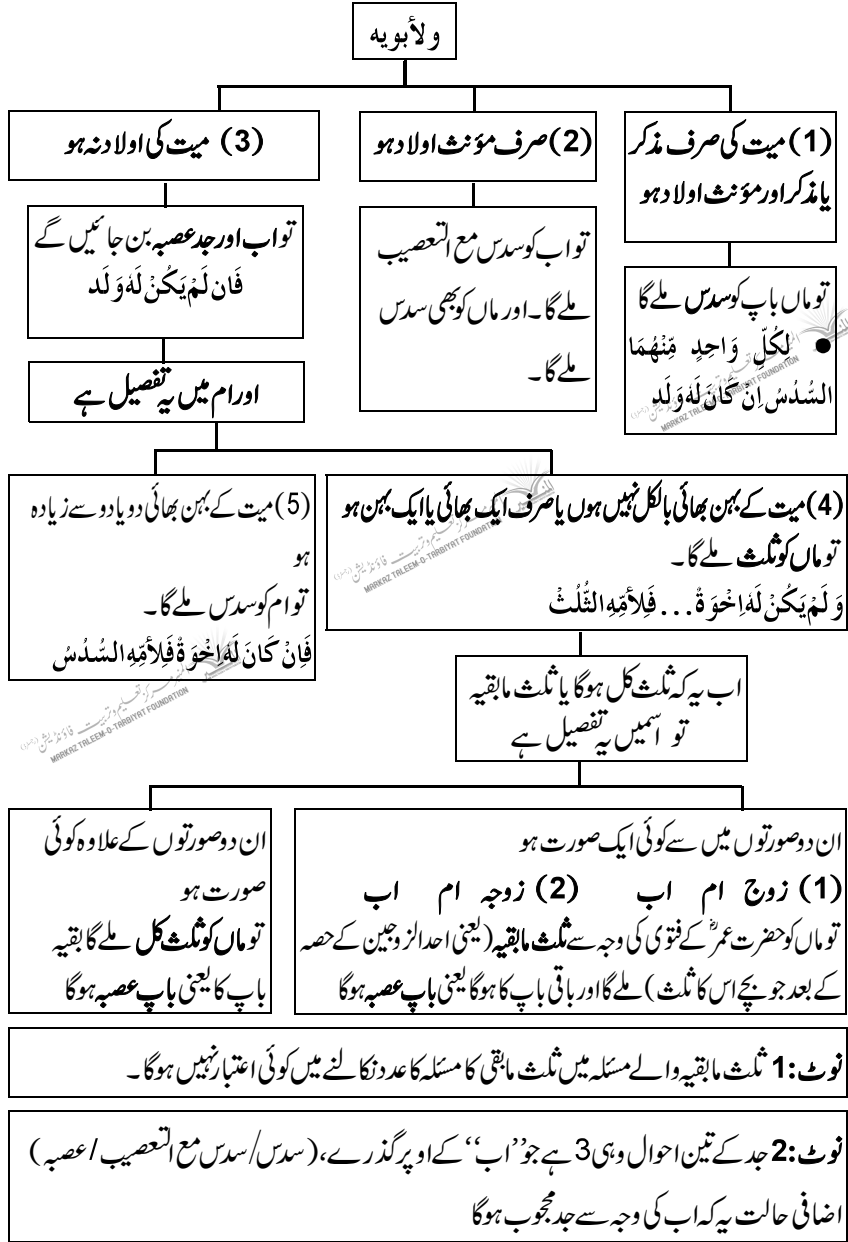 ولأبویه
(1) میت کی صرف مذکر
یا مذکر اور مؤنث اولاد ہو
(2) صرف مؤنث اولاد ہو
(3) میت کی اولاد نہ ہو
تو ماں باپ کو سدس ملے گا
● لِكُلِّ وَاحِدٍ مِّنْهُمَا
السُّدُسُ اِنْ كَانَ لَهٗ وَلَد
تو اب کو سدس مع التعصیب
ملے گا۔ اور ماں کو بھی سدس
ملے گا۔
تو اب اور جد عصبہ بن جائیں گے
فَان لَمْ يَكُنْ لَهٗ وَلَد
اور ام میں یہ تفصیل ہے
(4) میت کے بہن بھائی بالکل نہیں ہوں یا صرف ایک بھائی یا ایک بہن ہو
تو ماں کو ثلث ملے گا۔
وَ لَمْ يَكُنْ لَهٗ اِخْوَةٌ... فَلِأمِّهِ الثُّلُثْ
(5) میت کے بہن بھائی دو یا دو سے زیادہ
ہو
تو ام کو سدس ملے گا۔
فَاِنْ كَانَ لَهٗ اِخْوَةٌ فَلِأمِّهِ السُّدُسُ
اب یہ کہ ثلث کل ہوگا یا ثلث مابقیہ
تو اسمیں یہ تفصیل ہے
ان دو صورتوں میں سے کوئی ایک صورت ہو
(1) زوج ام اب (2) زوجہ ام اب
تو ماں کو حضرت عمرؓ کے فتویٰ کی وجہ سے ثلث مابقیہ (یعنی احد الزوجین کے حصہ
کے بعد جو بچے اس کا ثلث) ملے گا اور باقی باپ کا ہوگا یعنی باپ عصبہ ہوگا
ان دو صورتوں کے علاوہ کوئی
صورت ہو
تو ماں کو ثلث کل ملے گا بقیہ
باپ کا یعنی باپ عصبہ ہوگا
نوٹ:1 ثلث مابقیہ والے مسئلہ میں ثلث مابقی کا مسئلہ کا عدد نکالنے میں کوئی اعتبار نہیں ہوگا۔
نوٹ:2 جد کے تین احوال وہی 3 ہے جو ”اب“ کے اوپر گذرے، (سدس/سدس مع التعصیب/عصبہ)
اضافی حالت یہ کہ اب کی وجہ سے جد محجوب ہوگا
MARKAZ TALEEM-O-TARBIYAT FOUNDATION
MARKAZ TALEEM-O-TARBIYAT FOUNDATION
MARKAZ TALEEM-O-TARBIYAT FOUNDATION